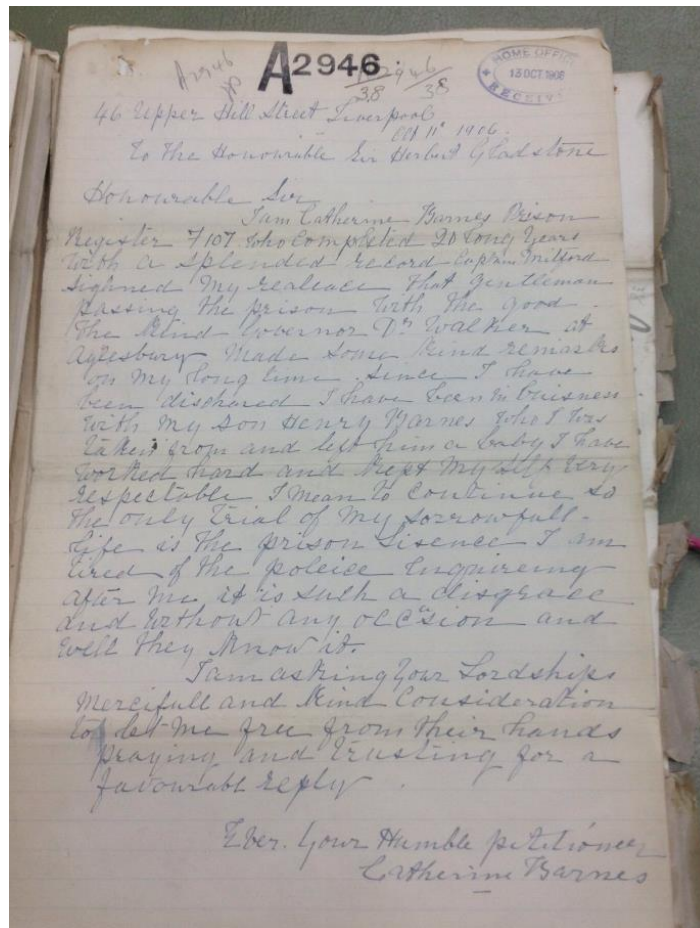 A2946
A2946.
A2946/38
HOME OFFICE
13 OCT 1906
RECEIVED
46 Upper Hill Street Liverpool
Oct 11th 1906.
To the Honourable Sir Herbert Gladstone
Honourable Sir
I am Catherine Barnes Prison
Register 7107 who completed 20 long years
with a splendid record Captain Milford
signed my realeace that gentleman
passing the prison with the good
the kind Governor Dr Walker at
Aylesbury made some kind remarks
on my long time since I have
been dischared I have been in buisness
with my son Henry Barnes who I was
taken from and left him a baby I have
worked hard and kept my self very
respectable I mean to continue so
the only trial of my sorrowfull
life is the prison lisence I am
tired of the poleice enquireing
after me it is such a disgrace
and without any occasion and
well they know it.
I am asking your Lordships
mercifull and kind consideration
to let me free from their hands
praying and trusting for a
favourable reply.
Ever. your Humble petitioner
Catherine Barnes